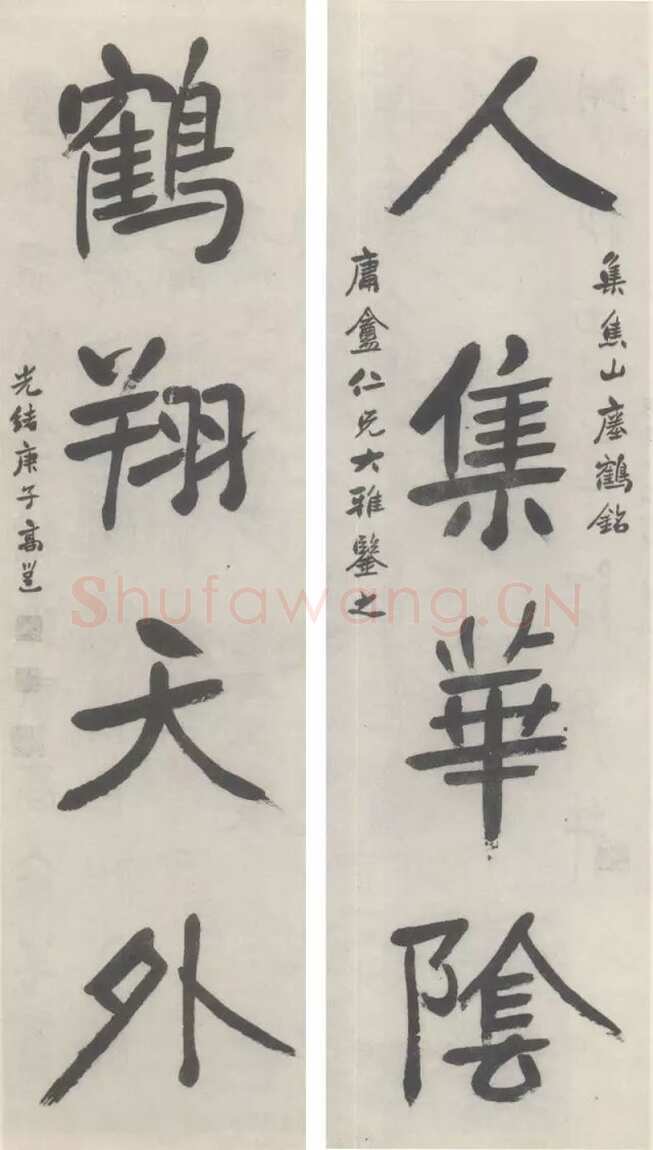 集焦山瘞鶴銘
人集華陰
庸盦仁兄大雅鑒之
鶴翔天外
光緒庚子高邕
Shufawang.CN